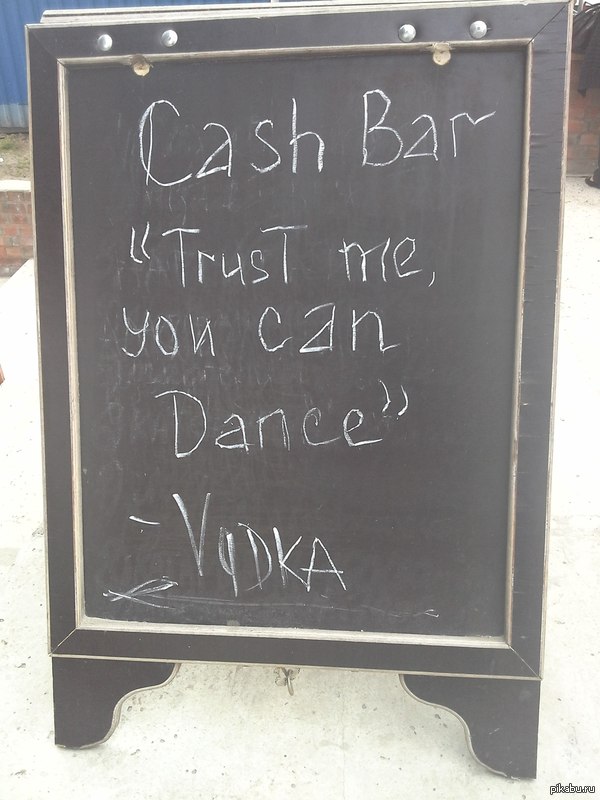 Cash Bar
“Trust me,
you can
Dance”
- VODKA
pikabu.ru